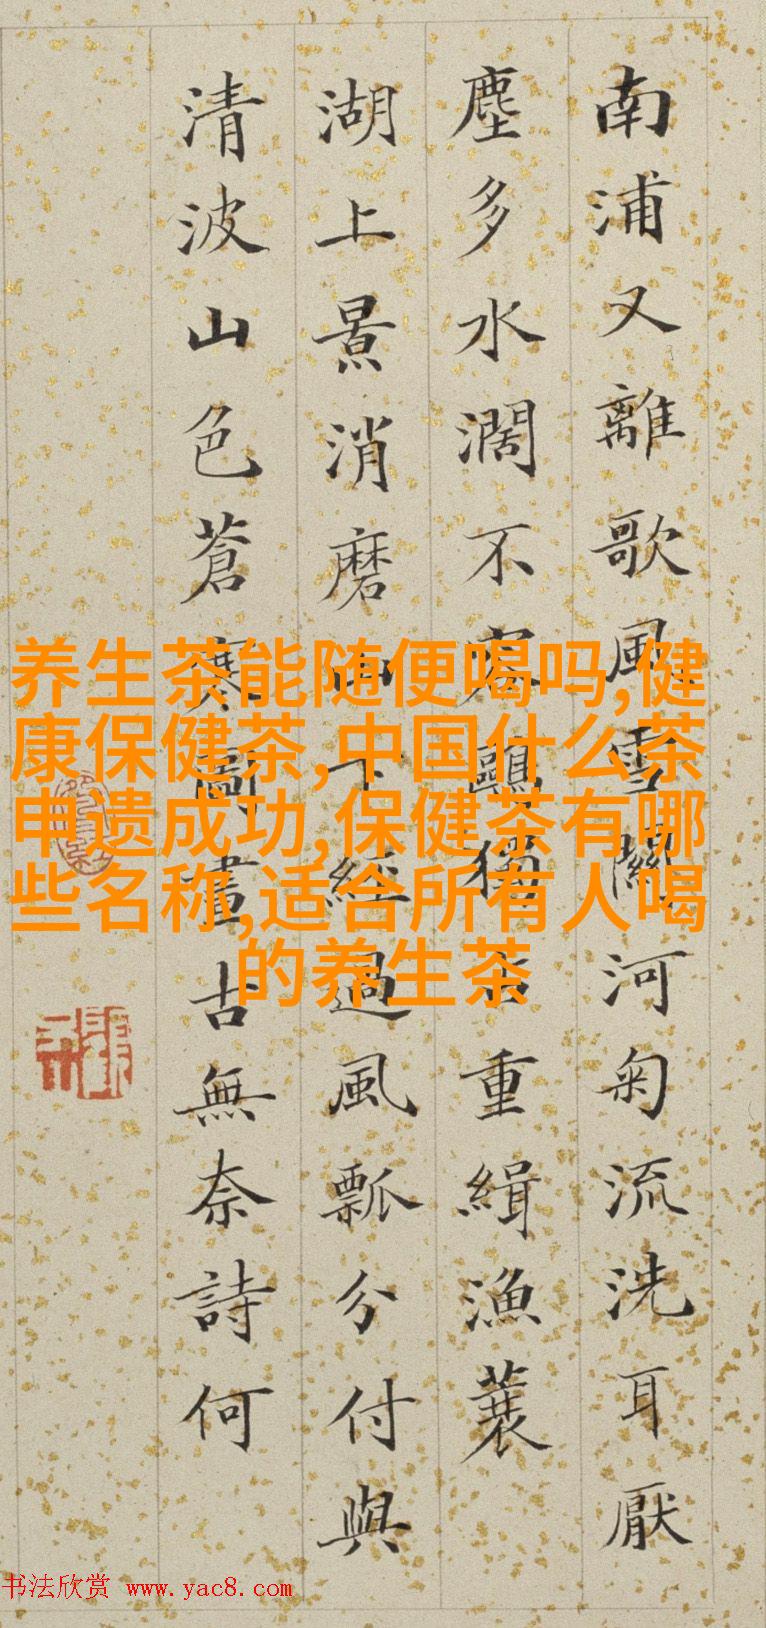 南浦又離歌風雪關河匊流洗耳厭
塵多水濶不容鷗獨占重緝漁蓑
湖上景消磨山下經過風瓢分付與
清波山色蒼寒圖畫古無奈詩何
养生茶能随便喝吗,健
康保健茶,中国什么茶
申遗成功,保健茶有哪
些名称,适合所有人喝
的养生茶
书法欣赏 www.yac8.com